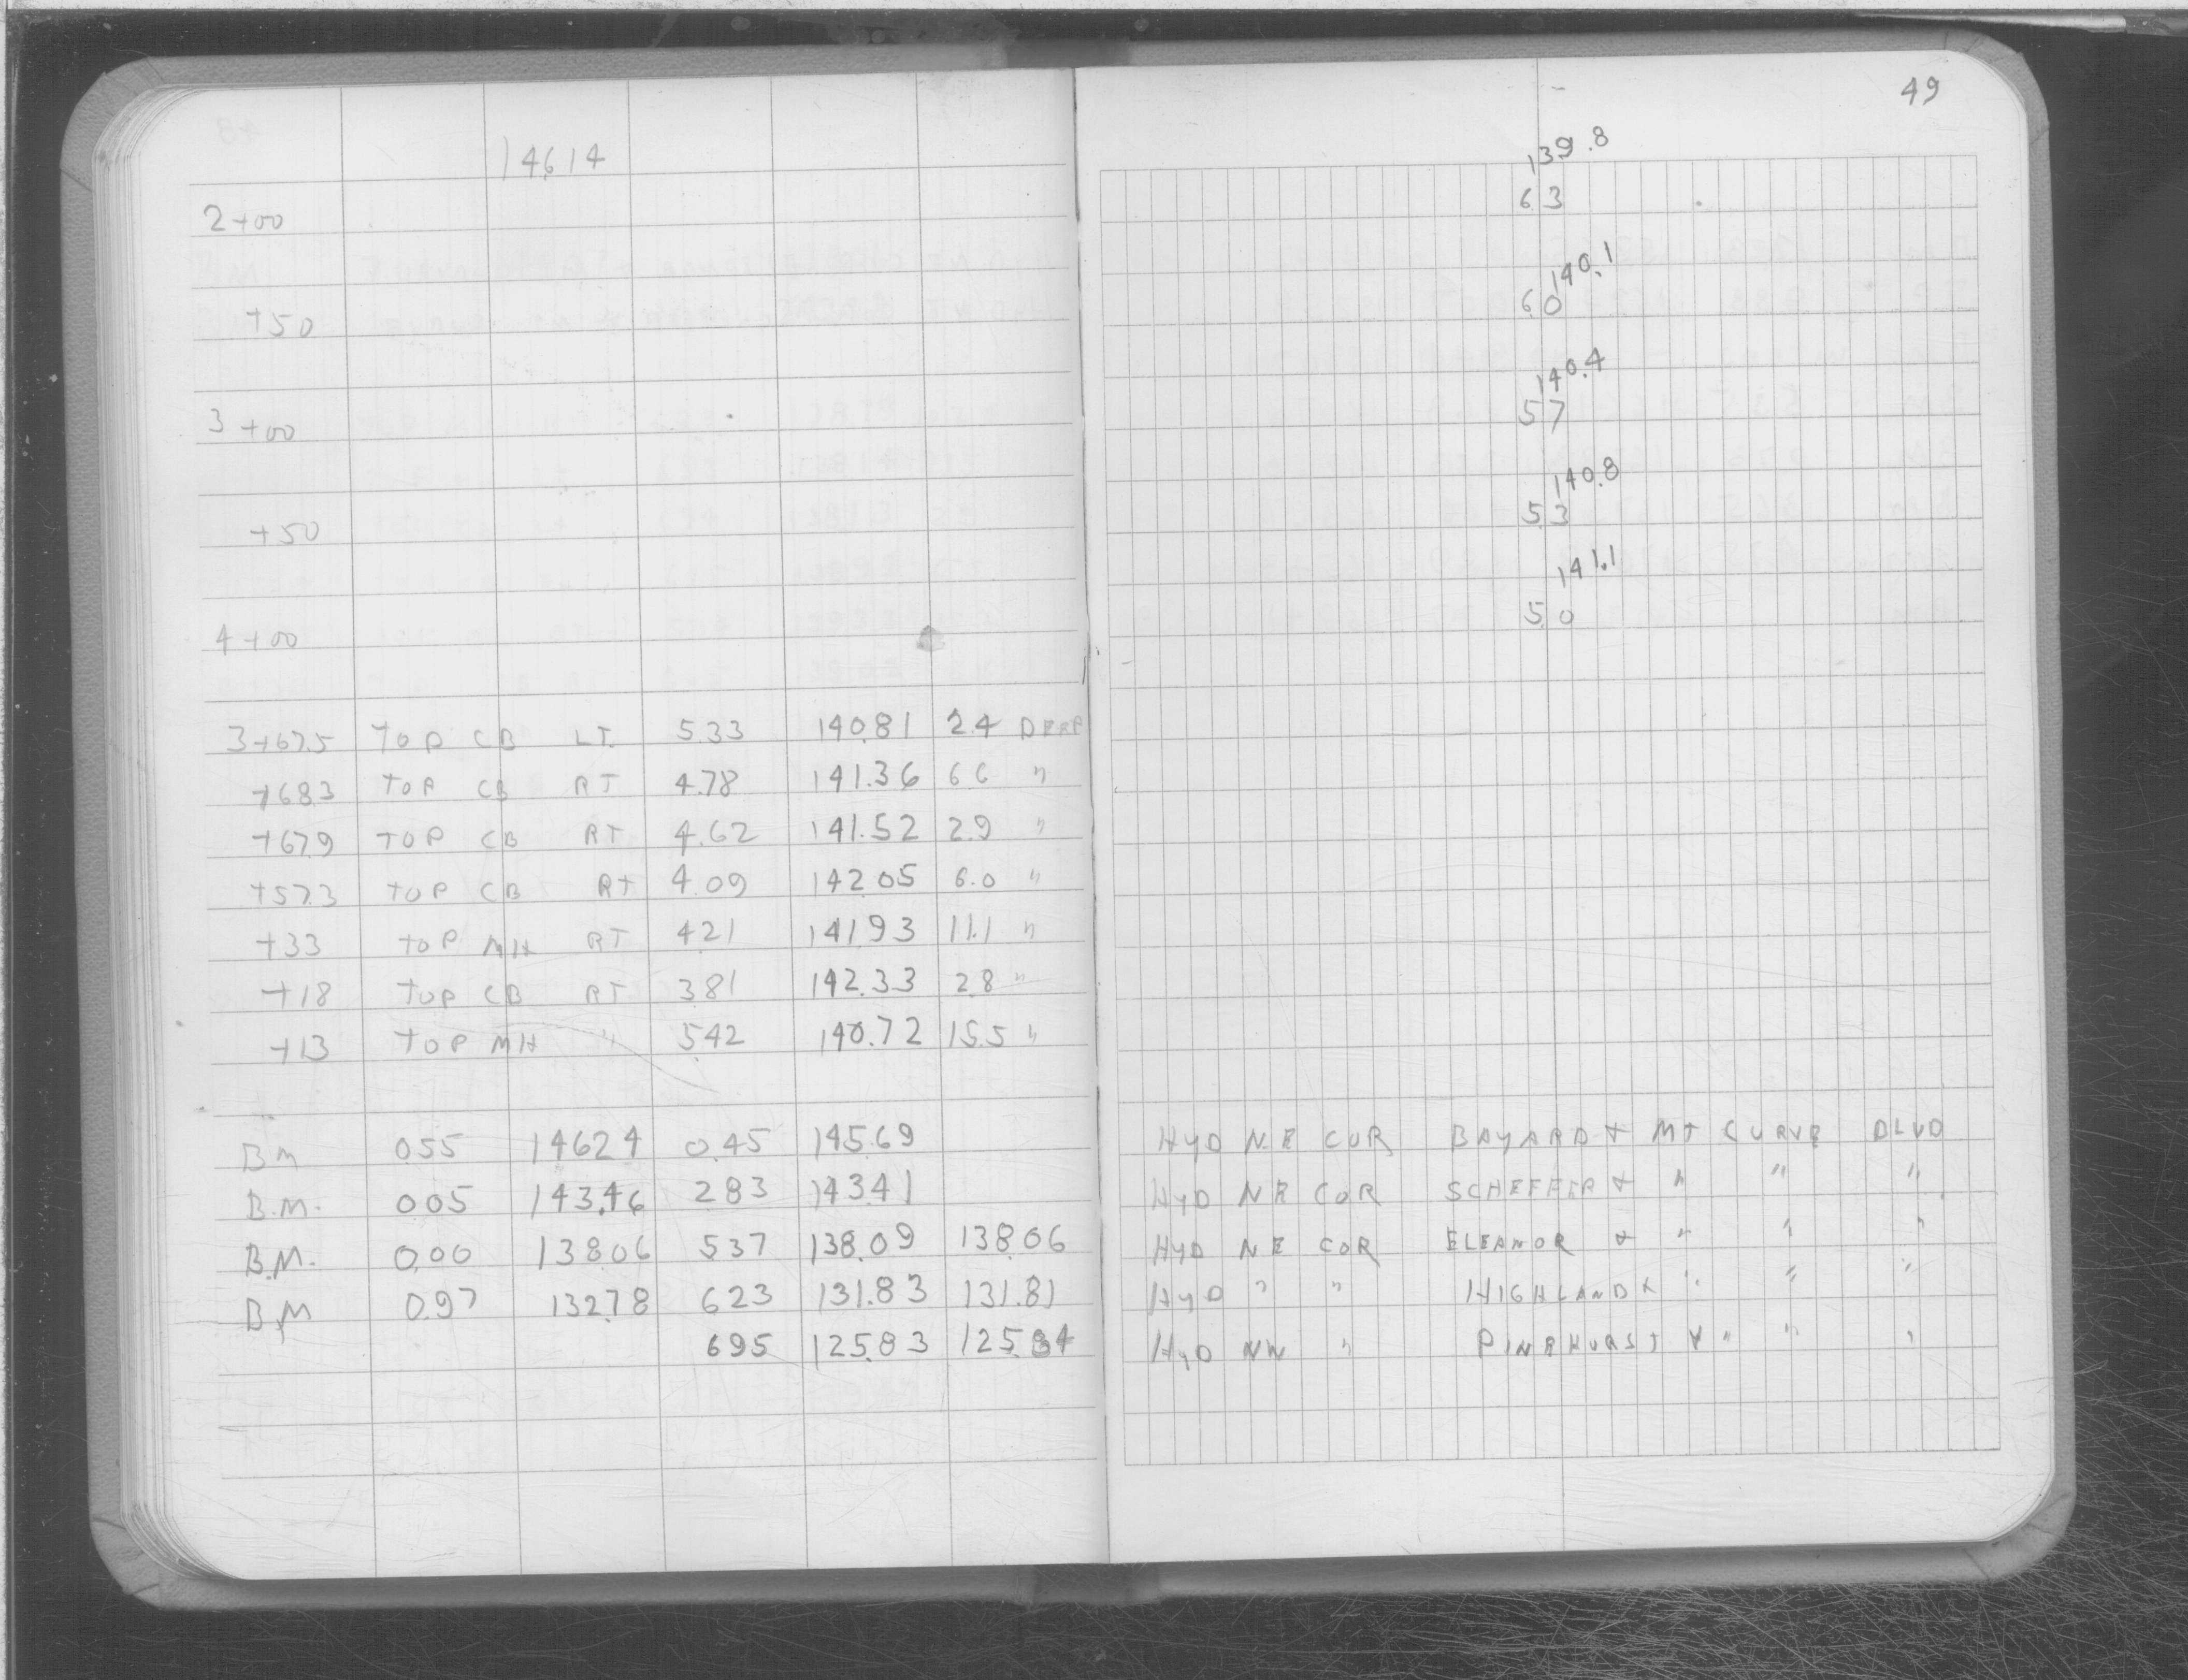 14614
2+00
+50
3+00
+50
4+00
3+67.5 TOP CB LT. 5.33 140.81 2.4 DEEP
+68.3 TOP CB RT 4.78 141.36 6.6 "
+67.9 TOP CB RT 4.62 141.52 2.9 "
+57.3 TOP CB RT 4.09 142.05 6.0 "
+33 TOP MH RT 421 141.93 11.1 "
+18 TOP CB RT 381 142.33 2.8 "
+13 TOP MH " 542 140.72 15.5 "
BM 055 14624 0.45 145.69
B.M. 005 143.46 283 143.41
B.M. 0.00 138.06 537 138.09 138.06
B.M 0.97 132.78 623 131.83 131.81
695 125.83 125.84
49
139.8
6.3
140.1
6.0
140.4
5.7
140.8
5.3
141.1
5.0
HYD N.E COR BAYARD & MT CURVE BLVD
HYD NE COR SCHEFFER & " " "
HYD NE COR ELEANOR & " " "
HYD " " HIGHLAND & " " "
HYD NW " PINEHURST & " " "